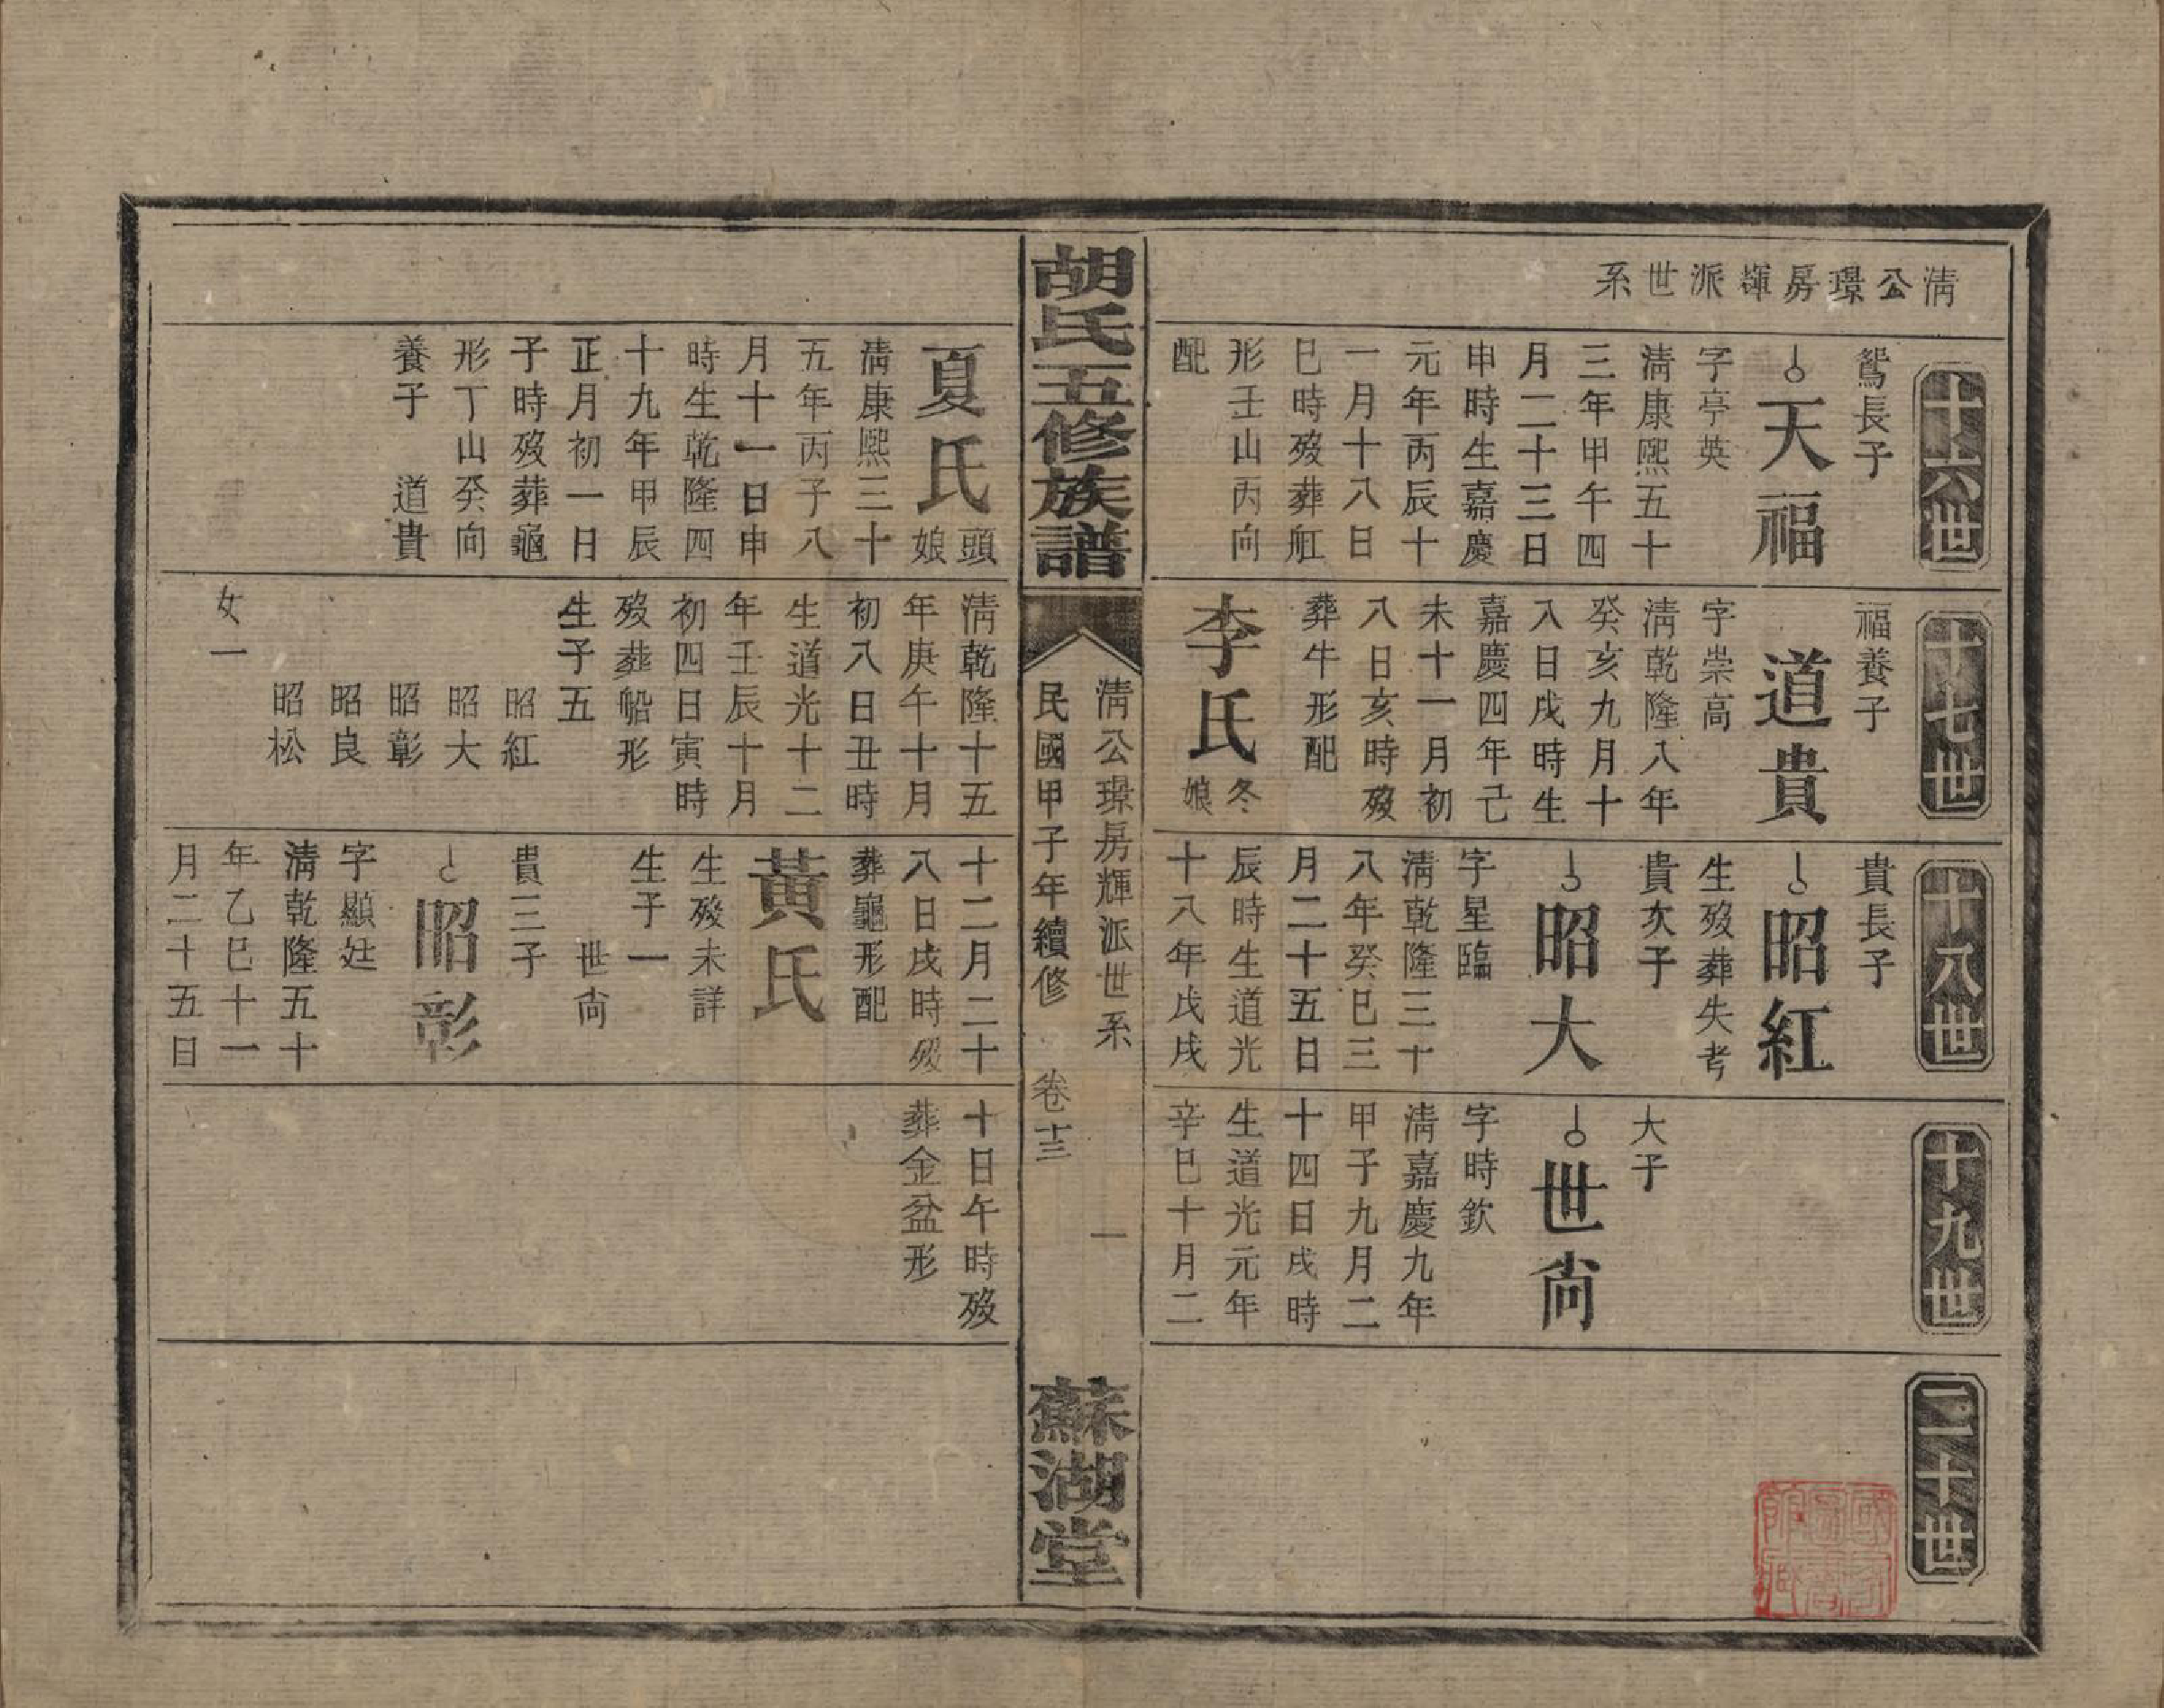 清公璟房輝派世系
十六世
鴛長子
天福
字亭英
清康熙五十
三年甲午四
月二十三日
申時生嘉慶
元年丙辰十
一月十八日
巳時歿葬舡
形壬山丙向
配
十七世
福養子
道貴
字崇高
清乾隆八年
癸亥九月十
八日戌時生
嘉慶四年己
未十一月初
八日亥時歿
葬牛形配
李氏冬娘
十八世
貴長子
昭紅
生歿葬失考
貴次子
昭大
字星臨
清乾隆三十
八年癸巳三
月二十五日
辰時生道光
十八年戊戌
十九世
大子
世尚
字時欽
清嘉慶九年
甲子九月二
十四日戌時
生道光元年
辛巳十月二
二十世
胡氏五修族譜
清公璟房輝派世系 一
民國甲子年續修 卷十三
蘇湖堂
夏氏頭娘
清康熙三十
五年丙子八
月十一日申
時生乾隆四
十九年甲辰
正月初一日
子時歿葬龜
形丁山癸向
養子 道貴
清乾隆十五
年庚午十月
初八日丑時
生道光十二
年壬辰十月
初四日寅時
歿葬船形
生子五
昭紅
昭大
昭彰
昭良
昭松
女一
十二月二十
八日戌時歿
葬龜形配
黃氏
生歿未詳
生子一
世尚
貴三子
昭彰
字顯廷
清乾隆五十
年乙巳十一
月二十五日
十日午時歿
葬金盆形